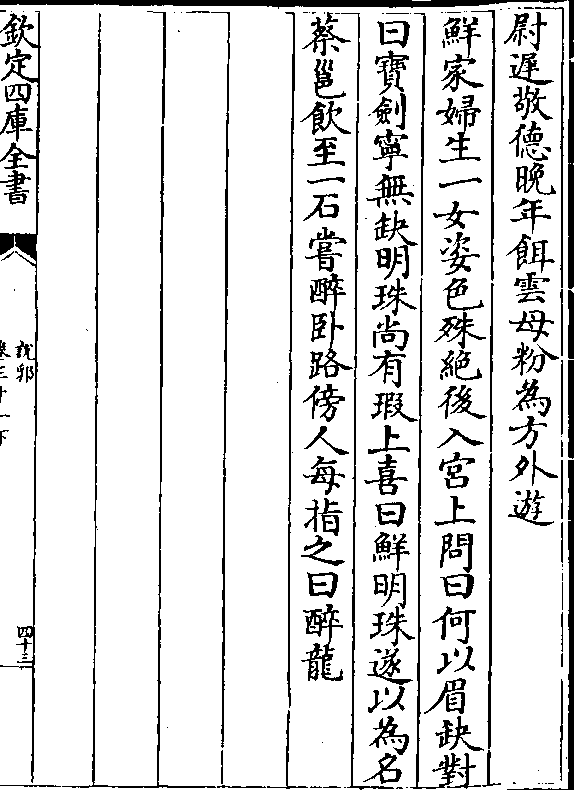 尉遲敬德晚年餌雲母粉為方外遊
鮮家婦生一女姿色殊絶後入宮上問曰何以眉缺對
曰寶劍寧無缺明珠尚有瑕上喜曰鮮明珠遂以為名
蔡邕飲至一石嘗醉卧路傍人每指之曰醉龍
欽定四庫全書
說郛
卷三十一下
四十三